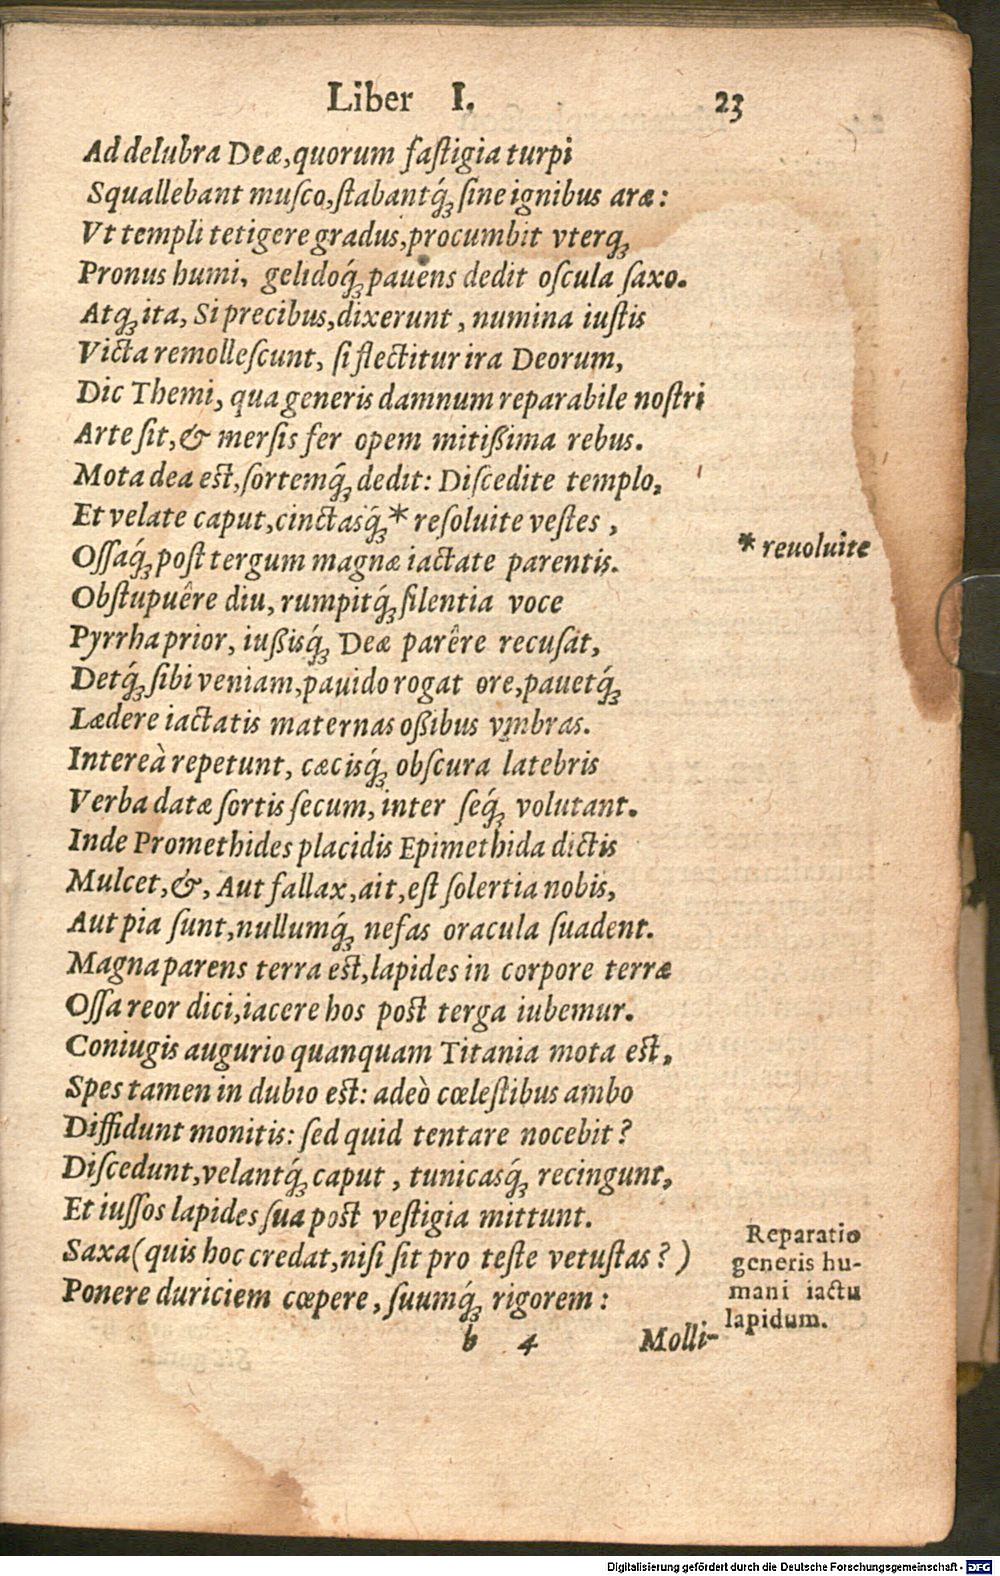 Liber I. 23
Ad delubra Deæ, quorum faſtigia turpi
Squallebant muſco, ſtabantq́ꝫ ſine ignibus aræ:
Vt templi tetigere gradus, procumbit vterqꝫ
Pronus humi, gelidoq́ꝫ pauens dedit oſcula ſaxo.
Atqꝫ ita, Si precibus, dixerunt, numina iuſtis
Victa remolleſcunt, ſi flectitur ira Deorum,
Dic Themi, qua generis damnum reparabile noſtri
Arte ſit, & merſis fer opem mitißima rebus.
Mota dea eſt, ſortemq́ꝫ dedit: Diſcedite templo,
Et velate caput, cinctasq́ꝫ * reſoluite veſtes,
* reuoluite
Oſſaq́ꝫ poſt tergum magnæ iactate parentis.
Obſtupuêre diu, rumpitq́ꝫ ſilentia voce
Pyrrha prior, iußisq́ꝫ Deæ parêre recuſat,
Detq́ꝫ ſibi veniam, pauido rogat ore, pauetq́ꝫ
Lædere iactatis maternas oßibus vmbras.
Intereà repetunt, cæcisq́ꝫ obſcura latebris
Verba datæ ſortis ſecum, inter ſeq́ꝫ volutant.
Inde Promethides placidis Epimethida dictis
Mulcet, &, Aut fallax, ait, eſt ſolertia nobis,
Aut pia ſunt, nullumq́ꝫ nefas oracula ſuadent.
Magna parens terra eſt, lapides in corpore terræ
Oſſa reor dici, iacere hos poſt terga iubemur.
Coniugis augurio quanquam Titania mota eſt,
Spes tamen in dubio eſt: adeò cœleſtibus ambo
Diffidunt monitis: ſed quid tentare nocebit?
Diſcedunt, velantq́ꝫ caput, tunicasq́ꝫ recingunt,
Et iuſſos lapides ſua poſt veſtigia mittunt.
Saxa (quis hoc credat, niſi ſit pro teſte vetuſtas?)
Ponere duriciem cœpere, ſuumq́ꝫ rigorem:
Reparatio
generis hu-
mani iactu
lapidum.
b 4 Molli-
Digitalisierung gefördert durch die Deutsche Forschungsgemeinschaft - DFG